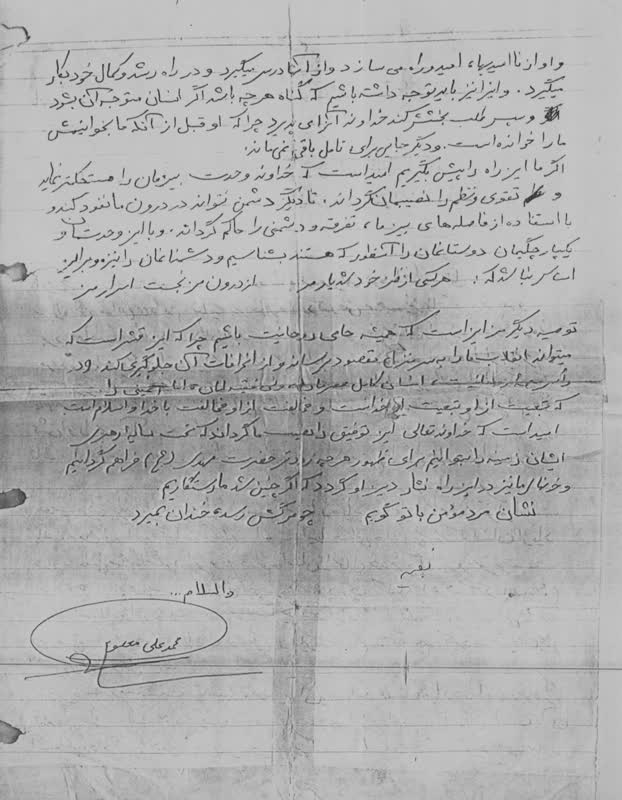 و او از ناامیدیها، امید وراه می سازد و از آنها درس میگیرد و در راه رشد و کمال خود بکار
میگیرد. و این را نیز باید توجه داشته باشیم که گناه هرچه باشد اگر انسان متوجه آن بشود
و سپس طلب بخشش کند خداوند آنرا می پذیرد چرا که او قبل از آنکه ما بخوانیمش
ما را خوانده است. و دیگر جایی برای تامل باقی نمی ماند.
اگر ما این راه را پیش بگیریم امید است که خداوند وحدت بین مان را مستحکمتر نماید
و تقوی و نظم را نصیبمان گرداند. تا دیگر دشمن نتواند در درون ما نفوذ کند و
با استفاده از فاصله های بین ما، تفرقه و دشمنی را حاکم گرداند. و با این وحدتمان و
یکپارچگیمان دوستانمان را آنطور که هستند بشناسیم و دشمنانمان را نیز و بر این
اساس نباشد که: هر کسی از ظن خود شد یار من از درون من نجست اسرار من
توصیه دیگر من این است که همیشه حامی روحانیت باشیم چرا که این قشر است که
میتواند انقلاب ما را به سر منزل مقصود برساند و از انحرافات آن جلوگیری کند و در
رأس این روحانیت، انسان کامل امام خمینی را
که تبعیت از او تبعیت از خداست و مخالفت از او مخالفت با خدا و اسلام است
امید است که خداوند تعالی این توفیق را نصیب ما گرداند که تحت رهبری
ایشان زمینه را بتوانیم برای ظهور هر چه زودتر حضرت مهدی (عج) فراهم گردانیم
و خون ما نیز در این راه نثار دین او گردد که اگر چنین شد ما رستگاریم
نشان مرد مؤمن با تو گویم چو مرگش رسد، خندان بمیرد
والسلام...
محمد علی